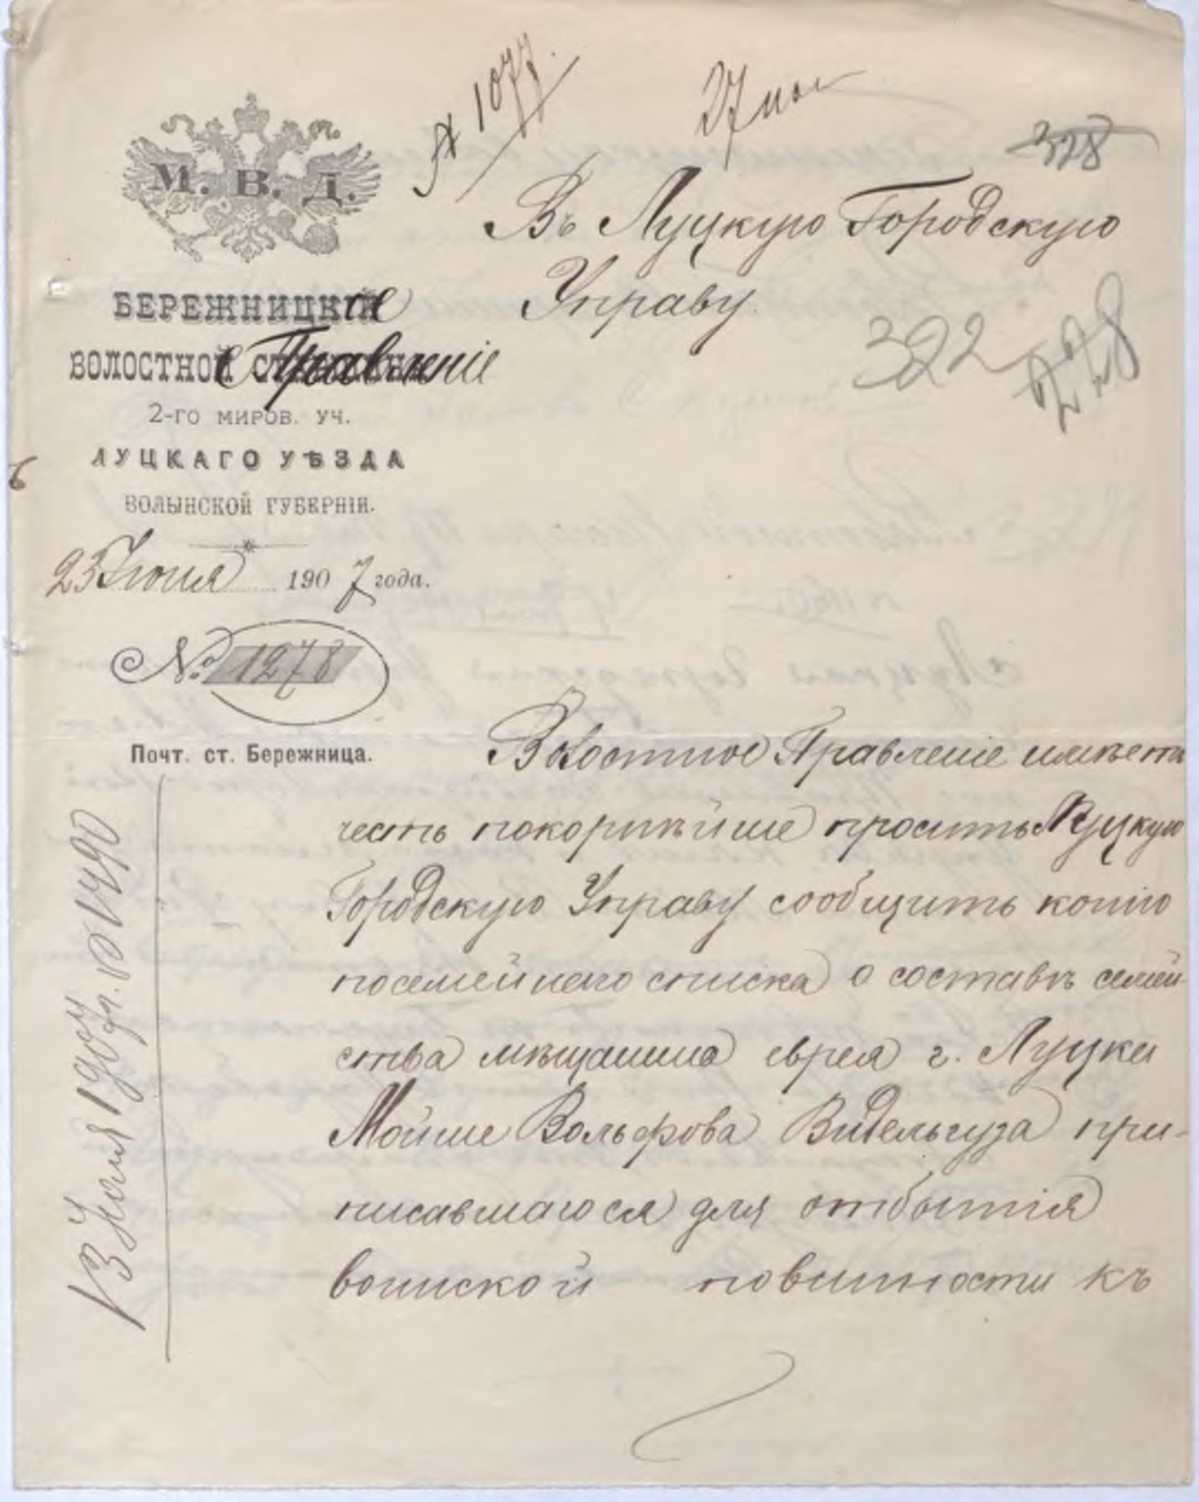 № 1077.
27 июн
328
М. В. Д.
Въ Луцкую Городскую
Управу.
322
228
БЕРЕЖНИЦКое
ВОЛОСТНОе Правленіе
2-ГО МИРОВ. УЧ.
ЛУЦКАГО УѢЗДА
ВОЛЫНСКОЙ ГУБЕРНІИ.
23 Іюня 1907 года.
№ 1278
Почт. ст. Бережница.
Волостное Правленіе имѣетъ
честь покорнѣйше просить Луцкую
Городскую Управу сообщить копію
посемейнаго списка о составѣ семей-
ства мѣщанина еврея г. Луцка
Мойше Вольфова Видельгуза при-
писавшагося для отбытія
воинской повинности къ
13 Іюля 1907 г. № 1490